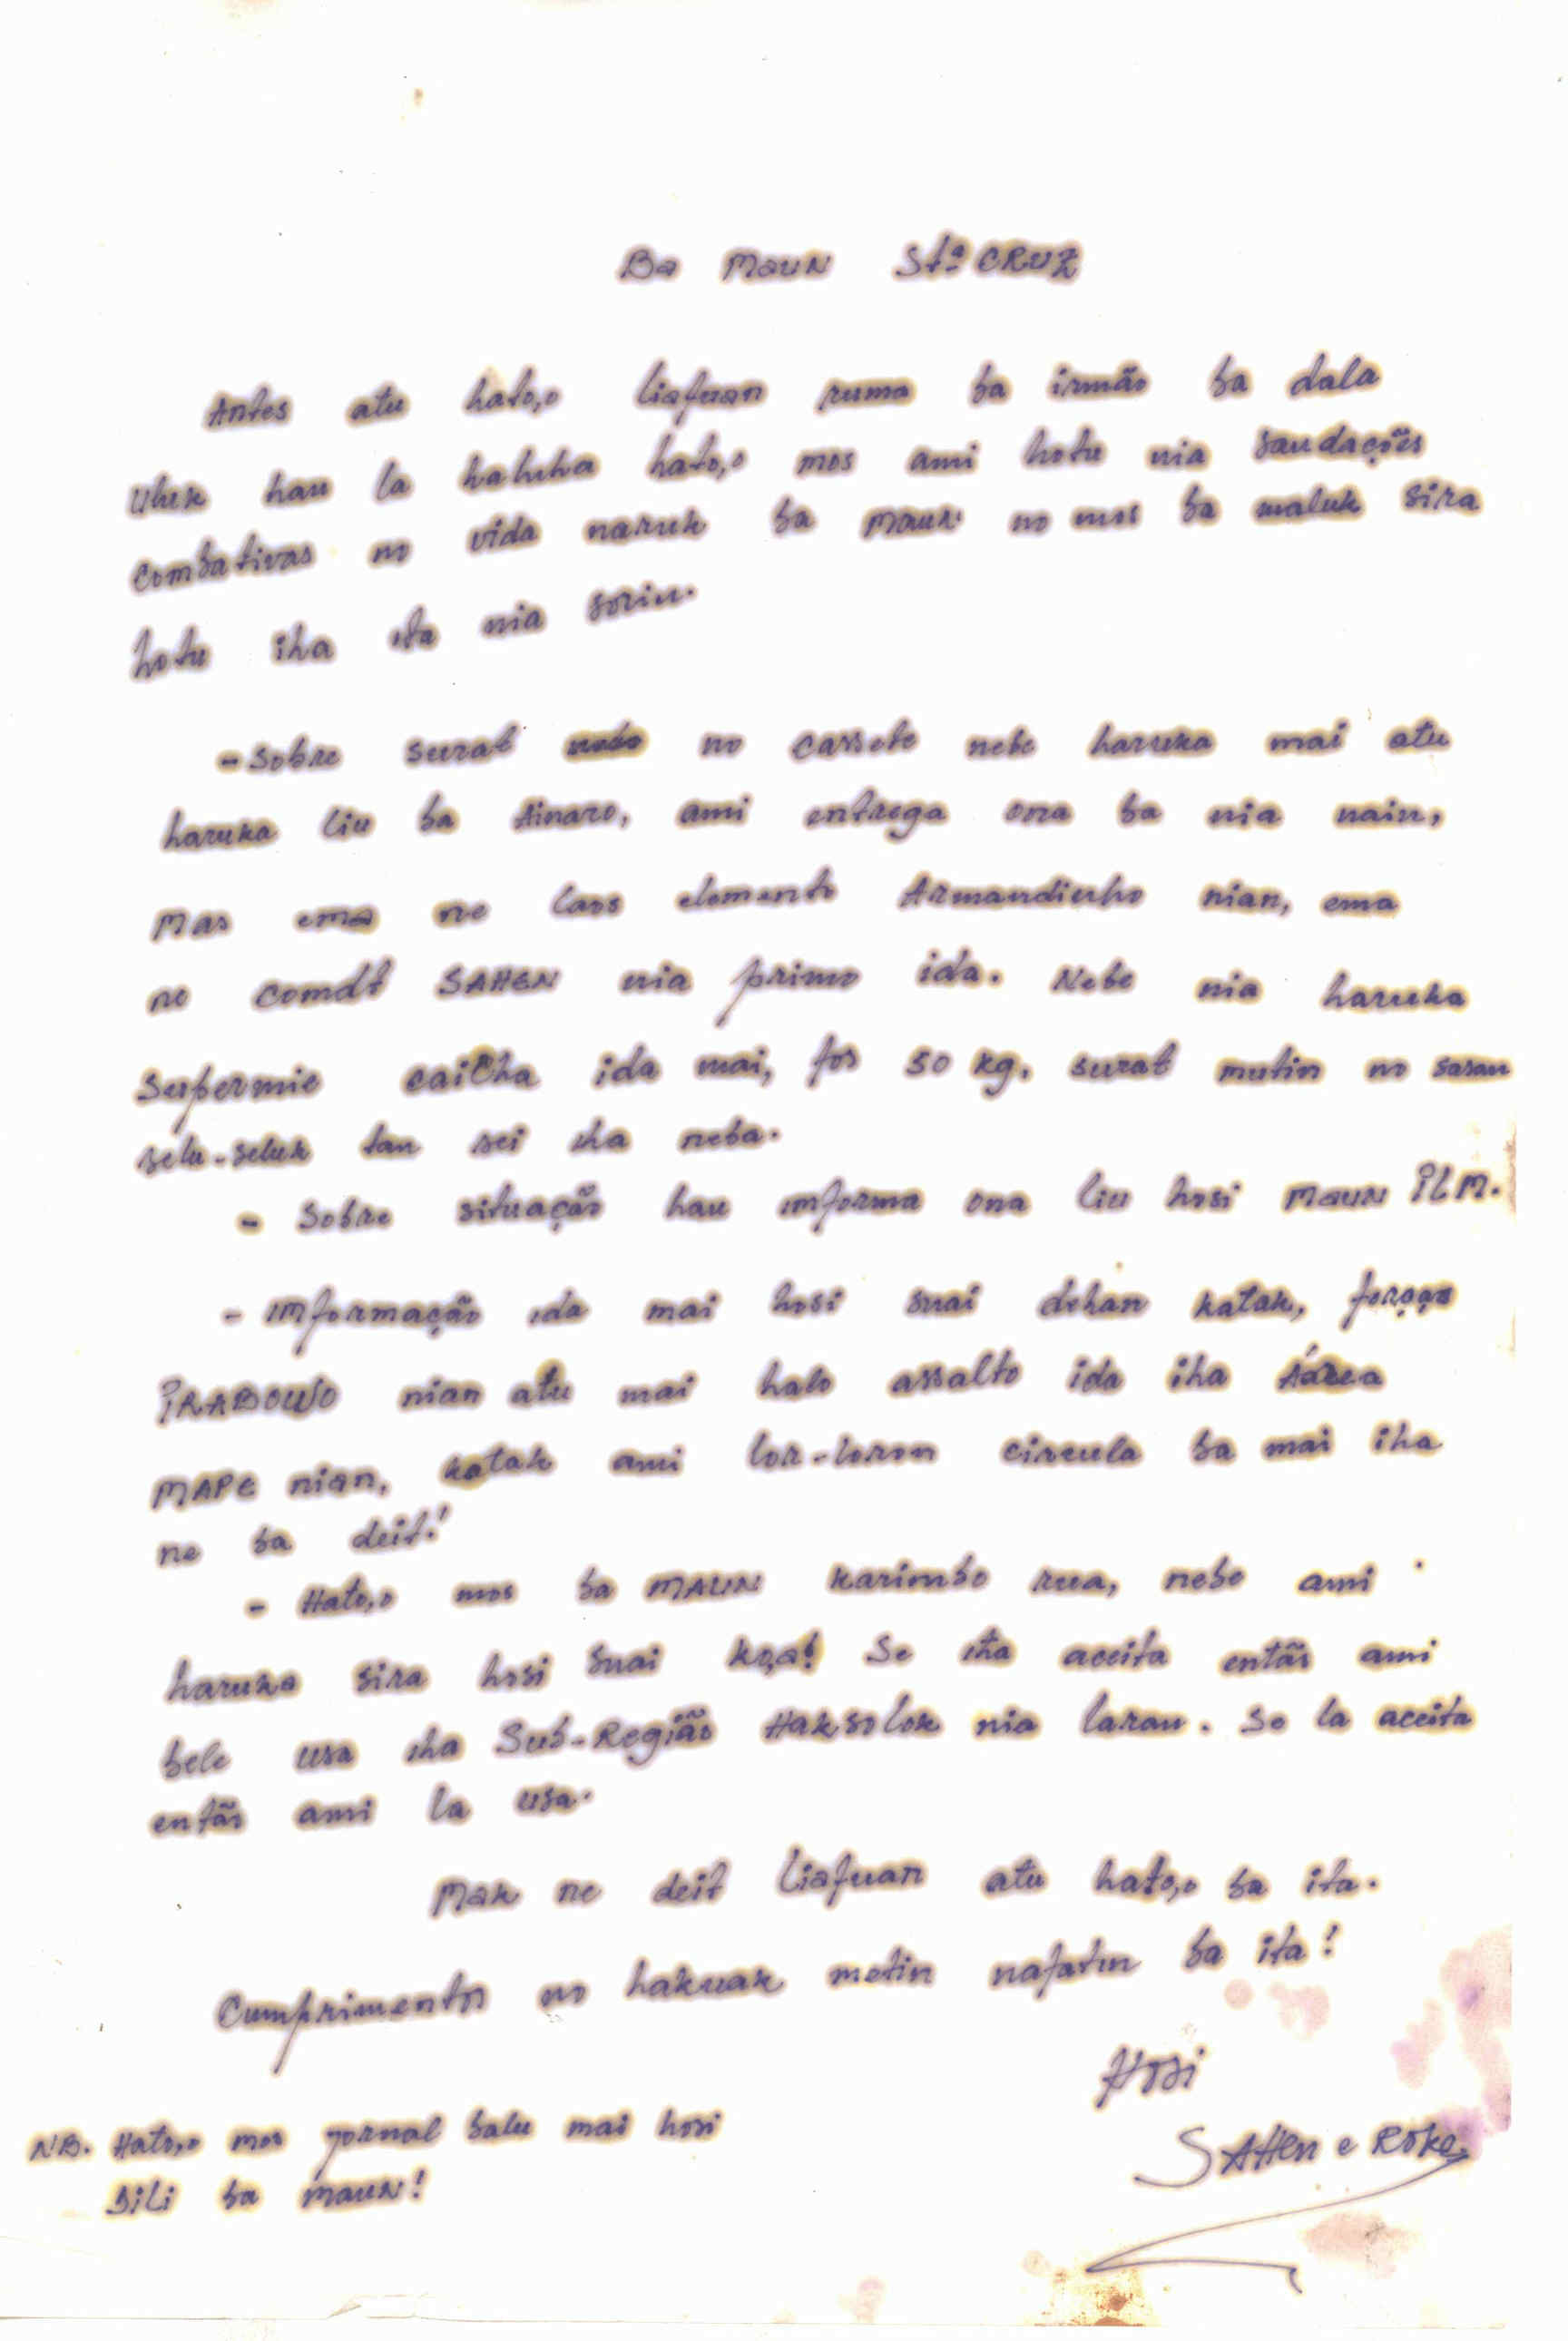 Ba Maun Stª CRUZ
Antes atu hato,o liafuan ruma ba irmão ba dala
uluk hau la haluha hato,o mos ami hotu nia saudações
combativas no vida naruk ba Maun no mos ba maluk sira
hotu iha ita nia sorin.
- Sobre surat no cassete nebe haruka mai atu
haruka liu ba Ainaro, ami entrega ona ba nia nain,
Mas ema ne laos elemento Armandinho nian, ema
ne comdt SAHEN nia primo ida. Nebe nia haruka
Supermie caicha ida mai, fos 50 kg, surat mutin no sasan
selu-seluk tan sei iha neba.
- Sobre situação hau informa ona liu hosi Maun P.L.M.
- Imformação ida mai hosi suai dehan katak, forças
PRABOWO nian atu mai halo assalto ida iha Área
MAPE nian, katak ami lor-loron circula ba mai iha
ne ba deit!
- Hato,o mos ba MAUN karimbo rua, nebe ami
haruka sira hosi Suai ko,a! Se ita aceita então ami
bele usa iha Sub-Região HAKSOLOK nia laran. Se la aceita
então ami la usa.
Mak ne deit liafuan atu hato,o ba ita.
Cumprimentos no hakuak metin nafatin ba ita!
Hosi
SAHEN e ROKE
NB. Hato,o mos jornal balu mai hosi
Dili ba Maun!